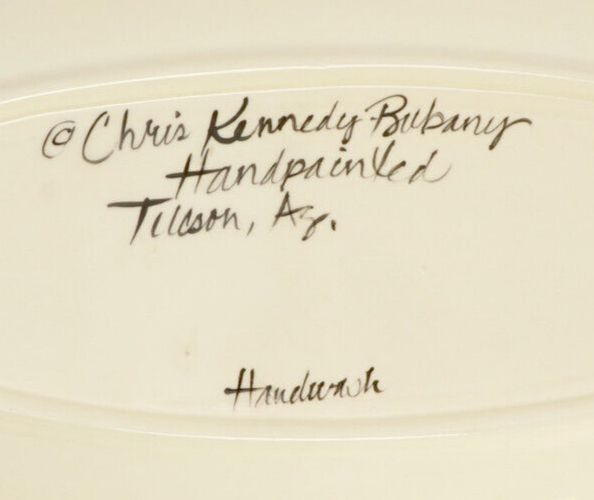 © Chris Kennedy-Bubany
Handpainted
Tucson, Az.
Handwash